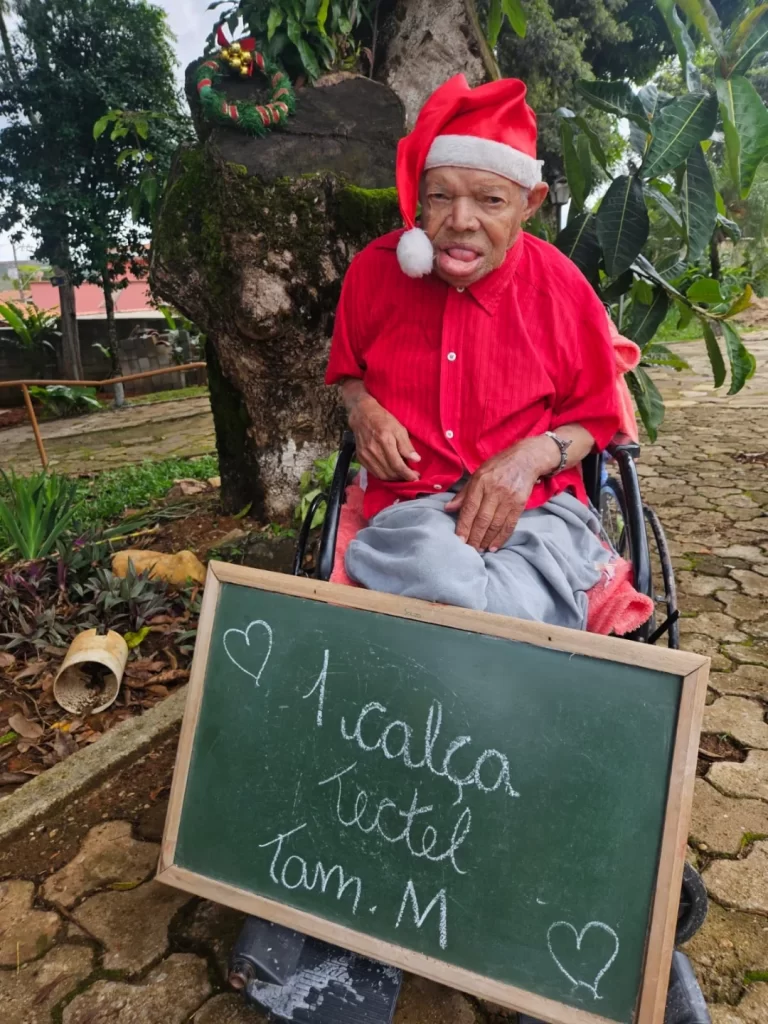 1 calça
Tectel
Tam. M